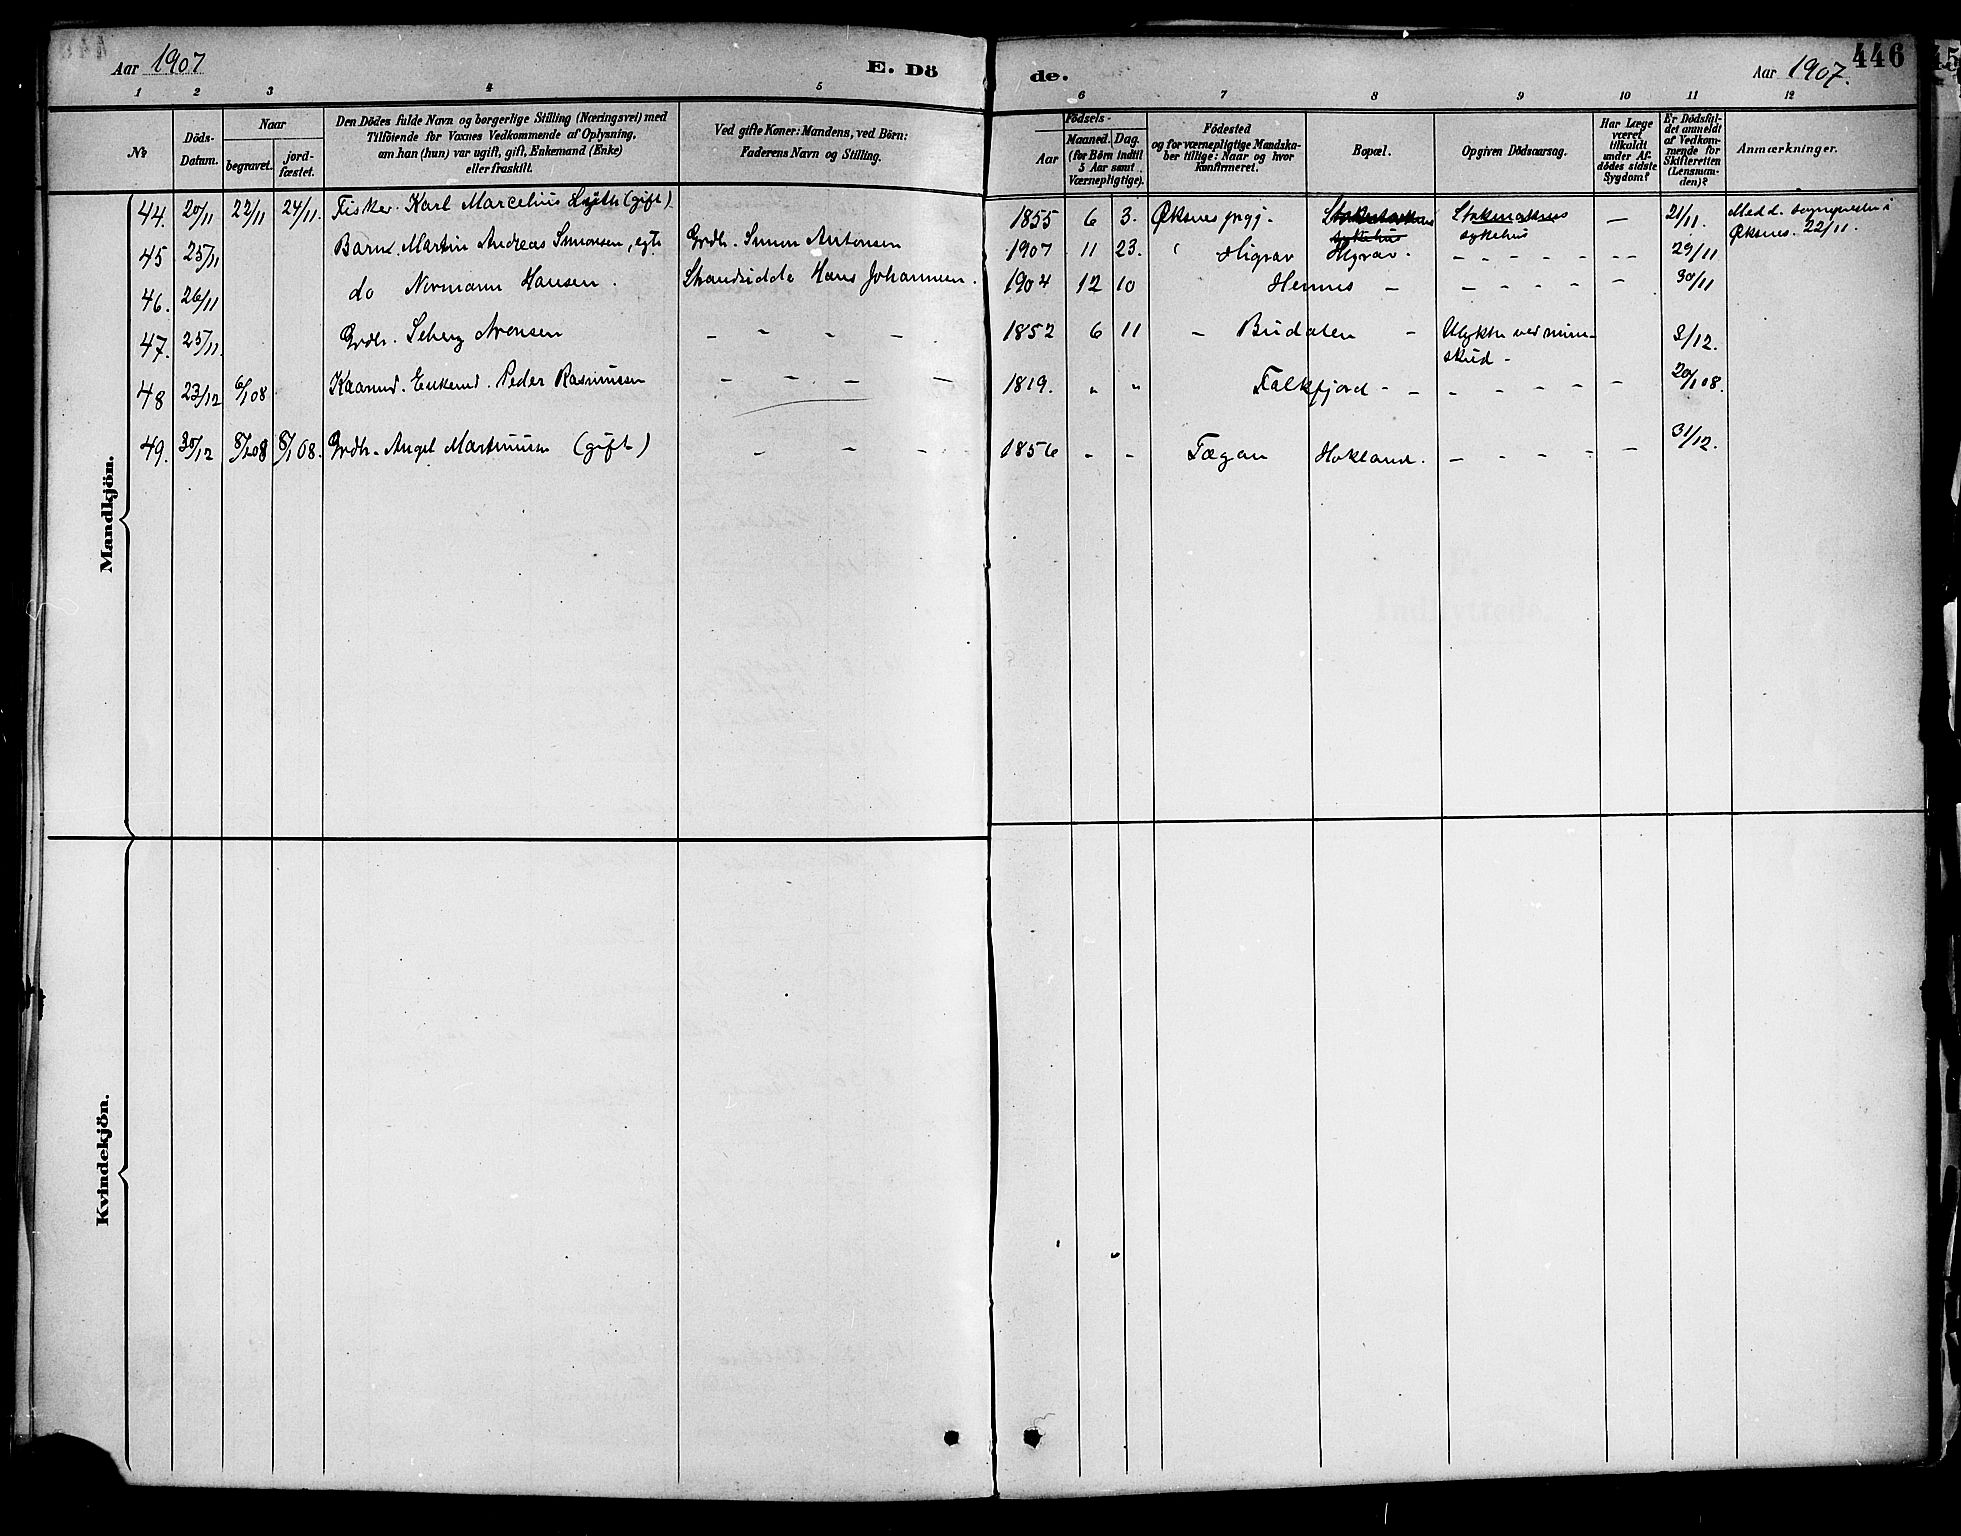 Aar 1907 E. Dö de. Aar 1907. 446
1 2 3 4 5 6 7 8 9 10 11 12
№
Döds-
Datum.
Naar
begravet.
jord-
fæstet.
Den Dödes fulde Navn og borgerlige Stilling (Næringsvei) med
Tilföiende for Voxnes Vedkommende af Oplysning,
om han (hun) var ugift, gift, Enkemand (Enke)
eller fraskilt.
Ved gifte Koner: Mandens, ved Börn:
Faderens Navn og Stilling.
Födsels-
Aar
Maaned. Dag.
(for Börn indtil
5 Aar samt
Værnepligtige).
Födested
og for værnepligtige Mandska-
ber tillige: Naar og hvor
konfirmeret.
Bopæl.
Opgiven Dödsaarsag.
Har Læge
været
tilkaldt
under Af-
dödes sidste
Sygdom?
Er Dödsfal-
det anmeldt
af Vedkom-
mende for
Skifteretten
(Lensman-
den)?
Anmærkninger.
Mandkjön.
44. 20/11 22/11 24/11. Fisker. Karl Marcelius (gift) 1855 6 3. Øksnes prgj. Stokmarknes sykehus Stokmarknes sykehus — 21/11. Medd. sognepresten i Øksnes. 22/11.
45 25/11 Barn. Martin Andreas Simonsen, egte Grdb. Simon Antonsen 1907 11 23. " Higrav Higrav. – – – – – – – 29/11
46. 26/11 do Normann Hansen. Strandsidder Hans Johannesen. 1904 12 10 Hennes – – – – – – – 30/11
47. 25/11. Grdb. Aronsen – – – – 1852 6 11 – Budalen – Ulykke ved mine-
skud – 3/12.
48 23/12 6/1 08 Kaarmd. Enkemd. Peder Rasmussen – – – – 1819. " " Falkfjord – – – – – – – 20/1 08.
49. 30/12 8/1 08 8/1 08. Grdb. Angel Martinussen (gift) – – – 1856 – – Tægan Hokland. – – – – – – 31/12.
Kvindekjön.